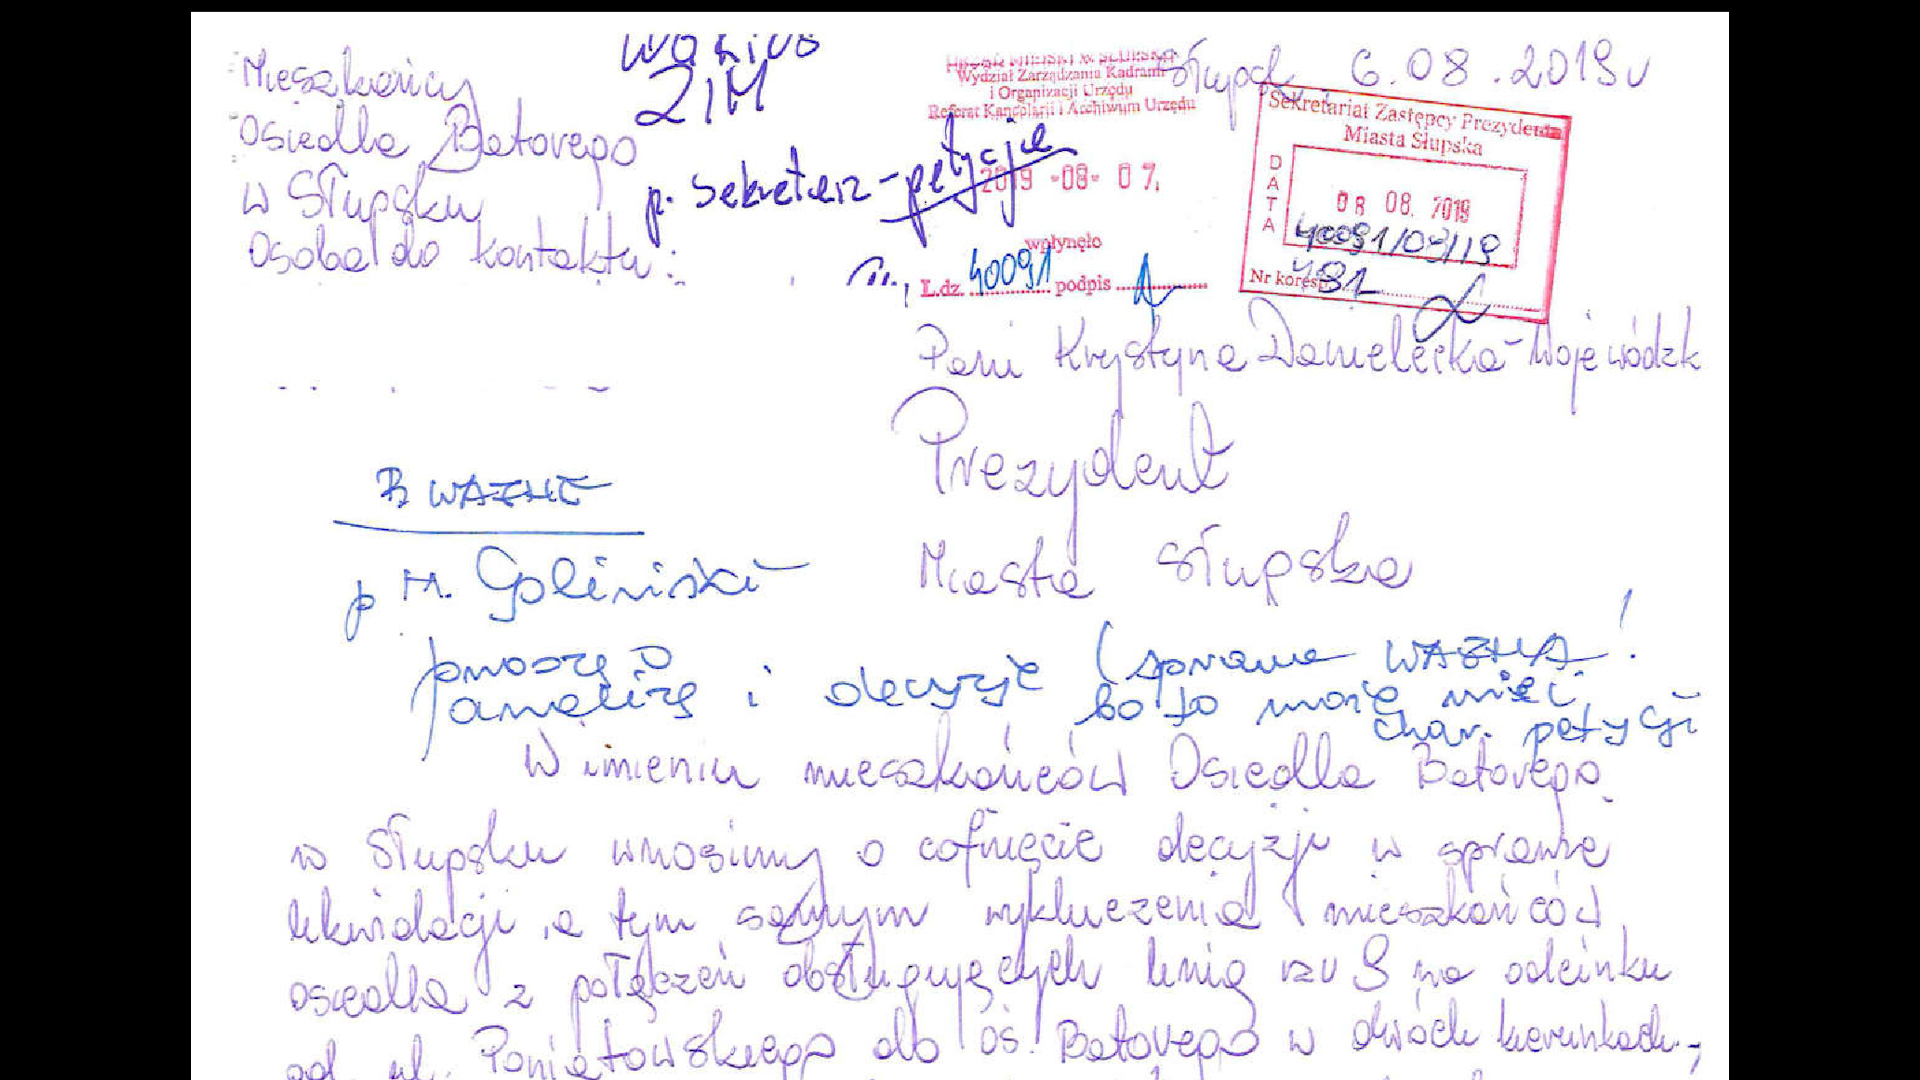 Mieszkańcy
Osiedla Batorego
w Słupsku
Osoba do kontaktu:
ZIM
p. Sekretarz - petycje
URZĄD MIEJSKI W SŁUPSKU
Wydział Zarządzania Kadrami
i Organizacji Urzędu
Referat Kancelarii i Archiwum Urzędu
2019 -08- 07.
wpłynęło
L.dz. 40091 podpis
Słupsk, 6.08.2019r
Sekretariat Zastępcy Prezydenta
Miasta Słupska
DATA
08 08. 2019
40091/08/19
Nr koresp. 481
Pani Krystyna Danielecka-Wojewódzk
Prezydent
Miasta Słupska
B WAŻNE
p M. Goliński
proszę o
analizę i decyzję (sprawa WAŻNA!
bo to może mieć
char. petycji
W imieniu mieszkańców Osiedla Batorego
w Słupsku wnosimy o cofnięcie decyzji w sprawie
likwidacji, a tym samym wykluczenia mieszkańców
osiedla z połączeń obsługujących linią nr 9 na odcinku
od ul. Poniatowskiego do oś. Batorego w dwóch kierunkach,